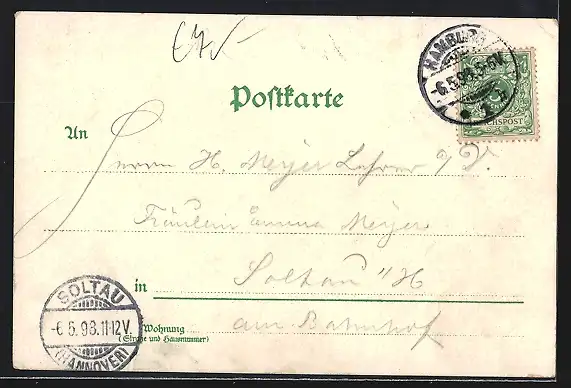 € 7,-
HAMBURG
-6.5.98.5-6V.
* 1 h
REICHSPOST
Postkarte
An
Herrn H. Meyer Lehrer
Fräulein Emma Meyer
in Soltau "/H
SOLTAU
-6.5.98.11-12V.
(HANNOVER)
Wohnung am Bahnhof
(Straße und Hausnummer)